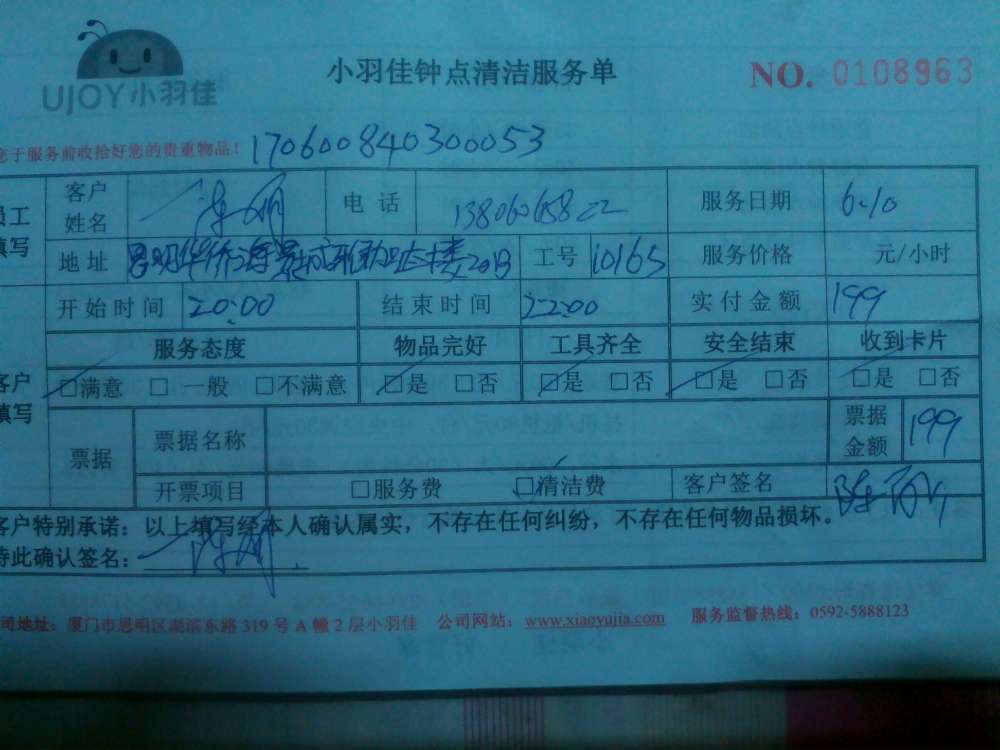 UJOY小羽佳
小羽佳钟点清洁服务单
NO. 0108963
您于服务前收拾好您的贵重物品！
170600840300053
员工填写
客户姓名
电话
服务日期 6.10
地址
工号 10165
服务价格 元/小时
开始时间 20:00 结束时间 22:00 实付金额 199
服务态度 物品完好 工具齐全 安全结束 收到卡片
客户填写
□满意 □一般 □不满意 □是 □否 □是 □否 □是 □否 □是 □否
票据 票据名称 票据金额 199
开票项目 □服务费 □清洁费 客户签名
客户特别承诺：以上填写经本人确认属实，不存在任何纠纷，不存在任何物品损坏。
特此确认签名：
司地址：厦门市思明区湖滨东路 319 号 A 幢 2 层小羽佳 公司网站：www.xiaoyujia.com 服务监督热线：0592-5888123